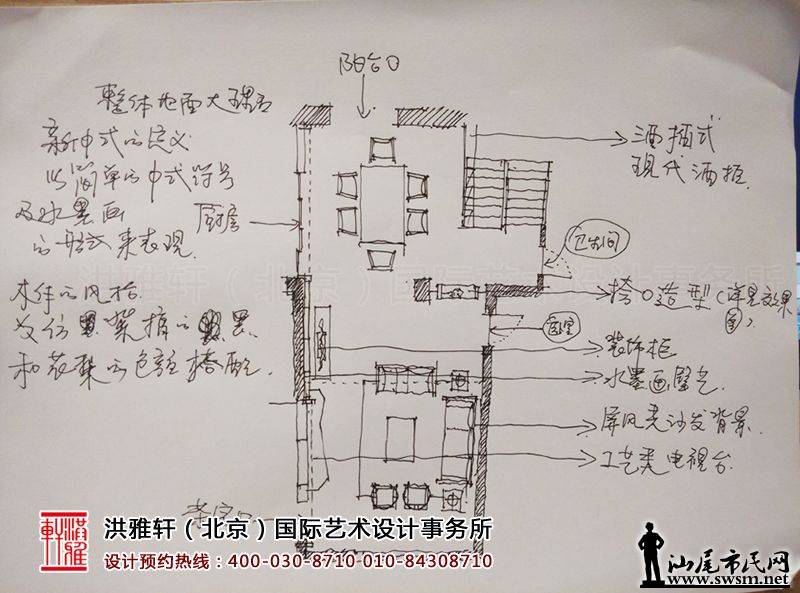 阳台口
整体地面大理石
新中式的定义
以简单的中式符号
及水墨画
的形式来表现
厨房
木作的风格
和花梨的色彩搭配
酒插式
现代酒柜
卫生间
垮口造型(详见效果图)
卧室
装饰柜
水墨画壁艺
屏风类沙发背景
工艺类电视台
洪雅轩(北京)国际艺术设计事务所
洪雅轩(北京)国际艺术设计事务所
设计预约热线:400-030-8710 010-84308710
洪雅轩
汕尾市民网
www.swsm.net